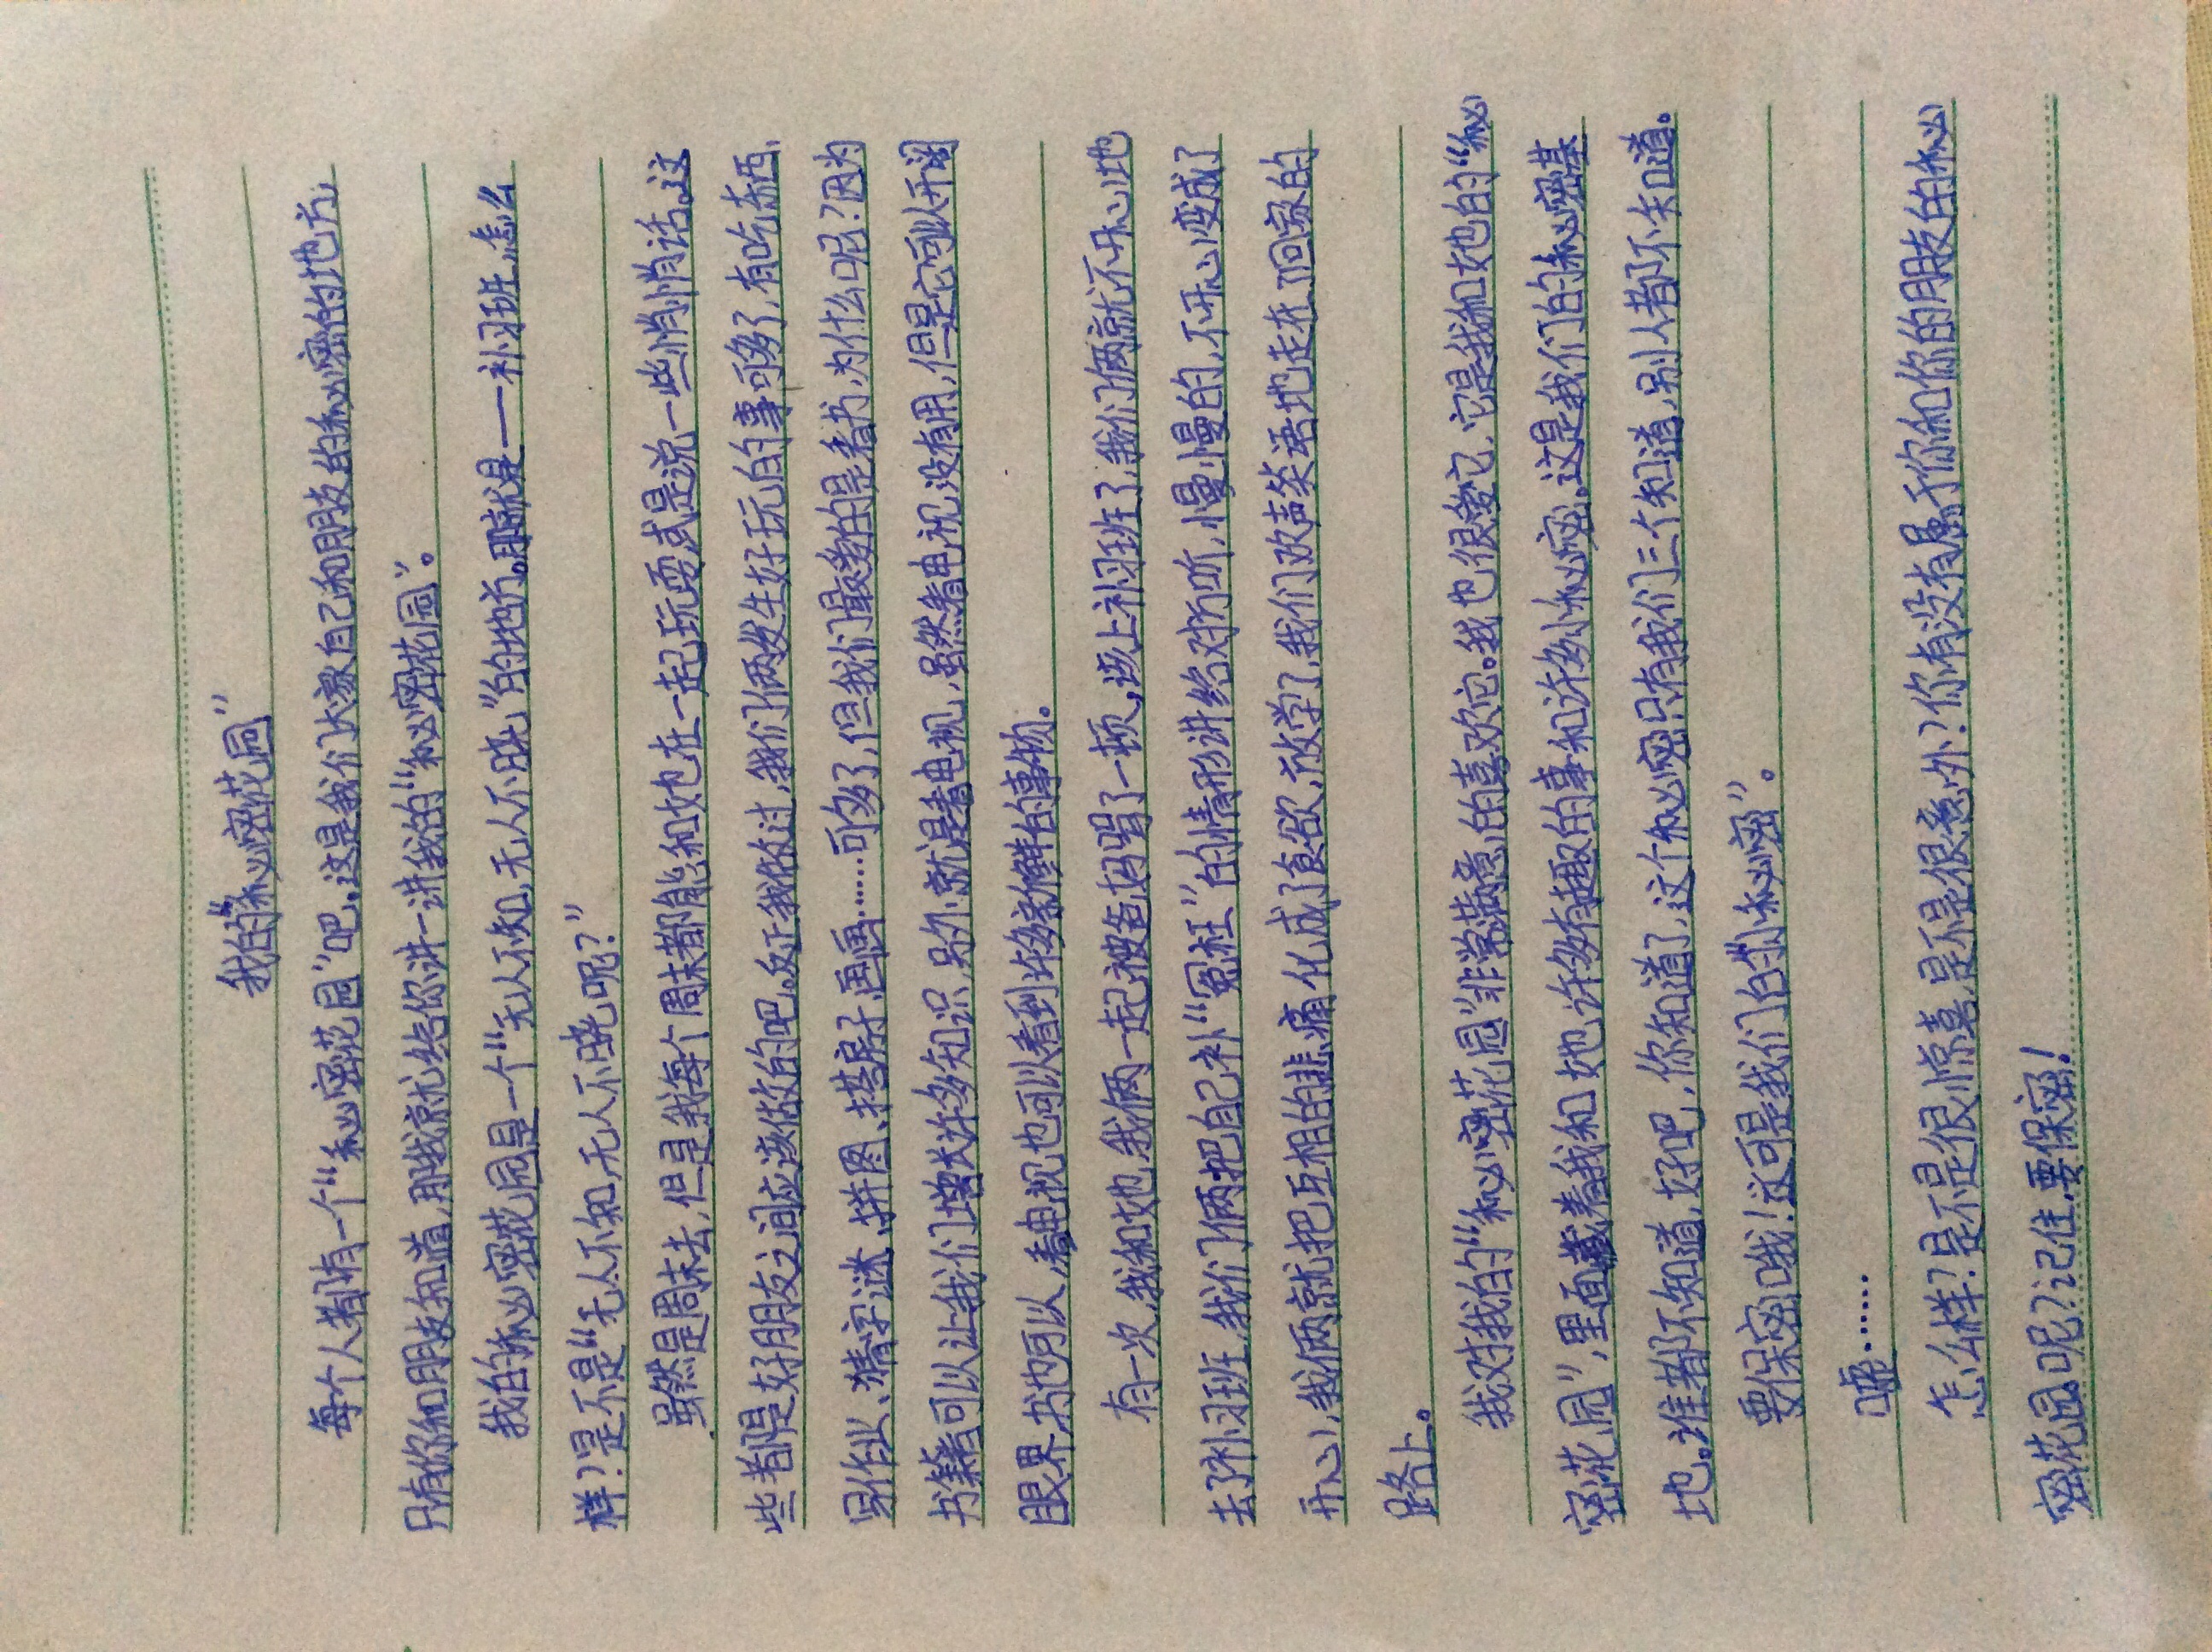 我的“秘密花园”
每个人都有一个“秘密花园”吧，这是我们大家自己和朋友的秘密的地方，
只有你和朋友知道，那我就给你讲一讲我的“秘密花园”。
我的秘密花园是一个“无人不知，无人不晓”的地方。那就是——补习班，怎么
样？是不是“无人不知，无人不晓呢？”
虽然是周末去，但是我每个周末都能和她在一起玩耍或是说一些悄悄话，这
些都是好朋友之间应该做的吧。反正我做过，我们俩发生好玩的事可多了，有吃东西、
写作业、猜字谜、拼图、搭房子、画画……可多了，但我们最多的是看书，为什么呢？因为
书籍可以让我们增长许多知识，另外，就是看电视，虽然看电视没有用，但是它可以开阔
眼界，书也可以，看电视也可以看到许多新鲜的事物。
有一次，我和她，我俩一起被爸妈骂了一顿，该上补习班了，我们俩就不开心地
去了补习班，我们俩把自己补“冤枉”的情形讲给对方听，慢慢的，不开心变成了
开心，我俩就把互相的悲痛化成了食欲，放学了，我们欢声笑语地走在了回家的
路上。
我对我的“秘密花园”非常满意的喜欢它。我也很爱它，它是我和她的“秘
密花园”，里面藏着我和她许多有趣的事和许多小秘密。这是我们的秘密基
地。谁都不知道，好吧，你知道了，这个秘密只有我们三个知道，别人都不知道。
要保密哦！这可是我们的“小秘密”。
嘘……
怎么样？是不是很惊喜，是不是很意外？你有没有属于你和你的朋友的秘
密花园呢？记住，要保密！